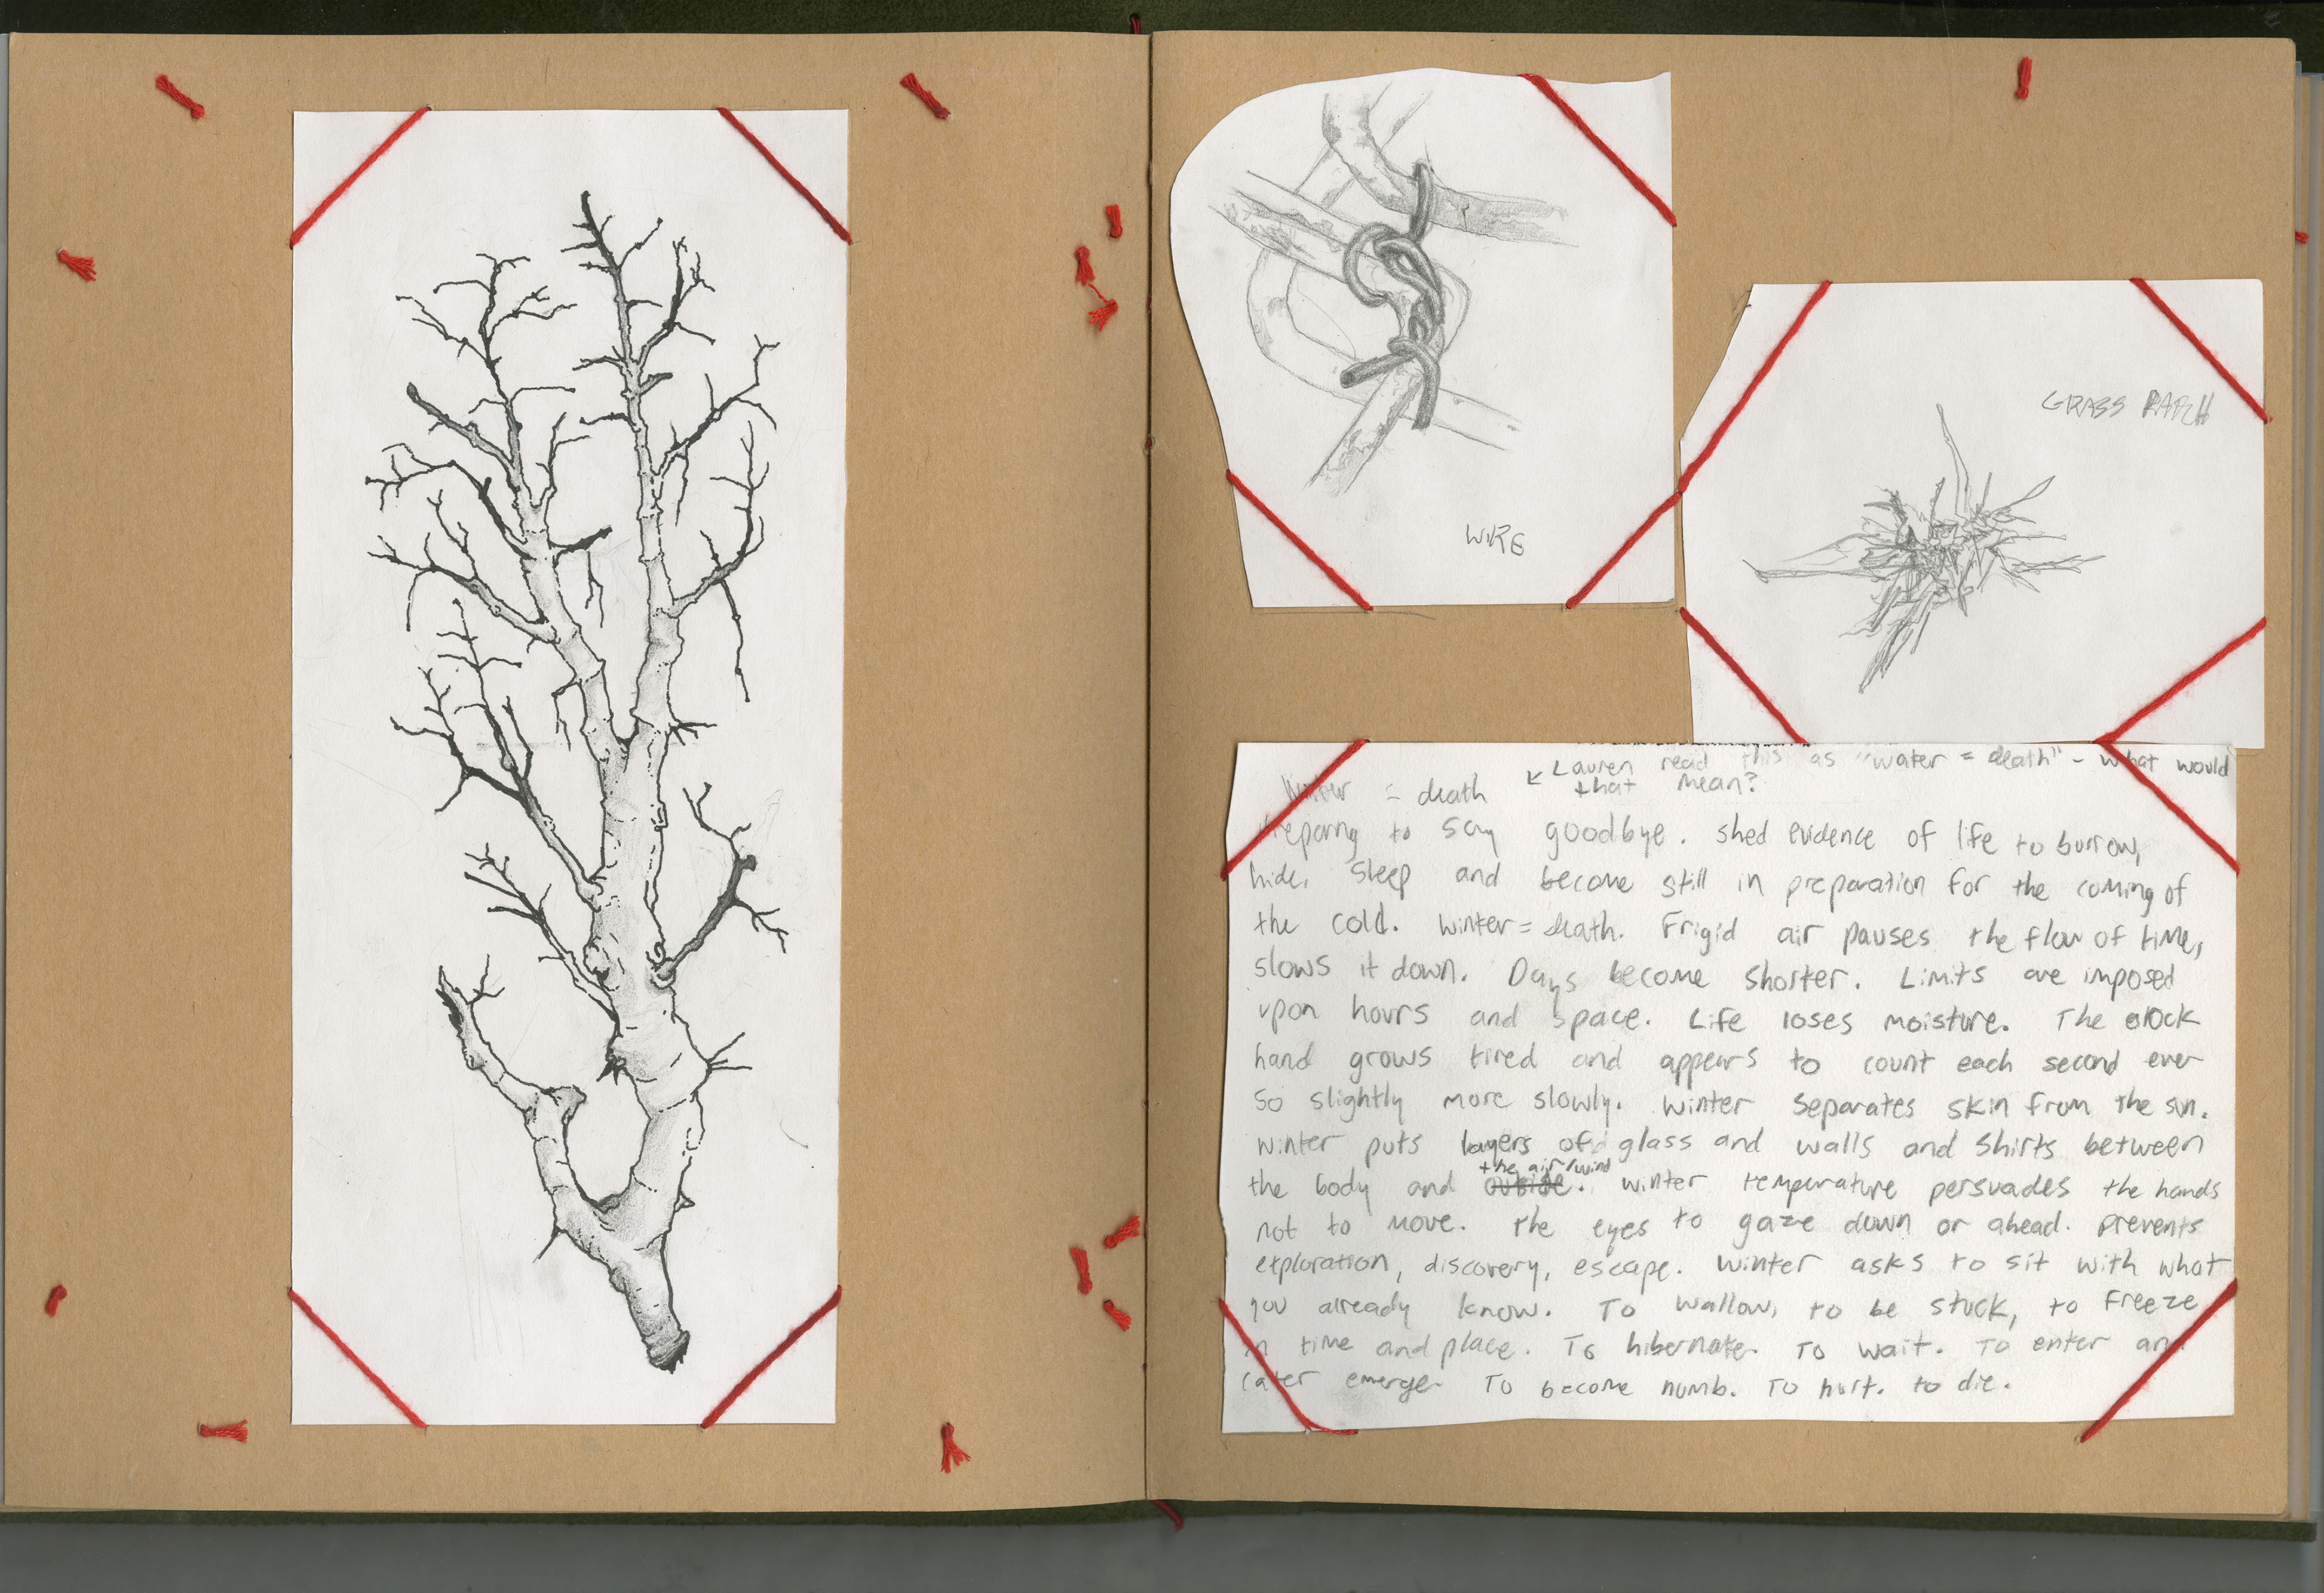 WIRE
GRASS PATCH
Lauren read this as "water = death" - what would
that mean?
Winter = death
Preparing to say goodbye. Shed evidence of life to burrow,
hide, sleep and become still in preparation for the coming of
the cold. Winter = death. Frigid air pauses the flow of time,
slows it down. Days become shorter. Limits are imposed
upon hours and space. Life loses moisture. The clock
hand grows tired and appears to count each second ever
so slightly more slowly. Winter separates skin from the sun.
Winter puts layers of glass and walls and shirts between
the air/wind
the body and outside. Winter temperature persuades the hands
not to move. The eyes to gaze down or ahead. Prevents
exploration, discovery, escape. Winter asks to sit with what
you already know. To wallow, to be stuck, to freeze
in time and place. To hibernate. To wait. To enter and
later emerge. To become numb. To hurt. To die.